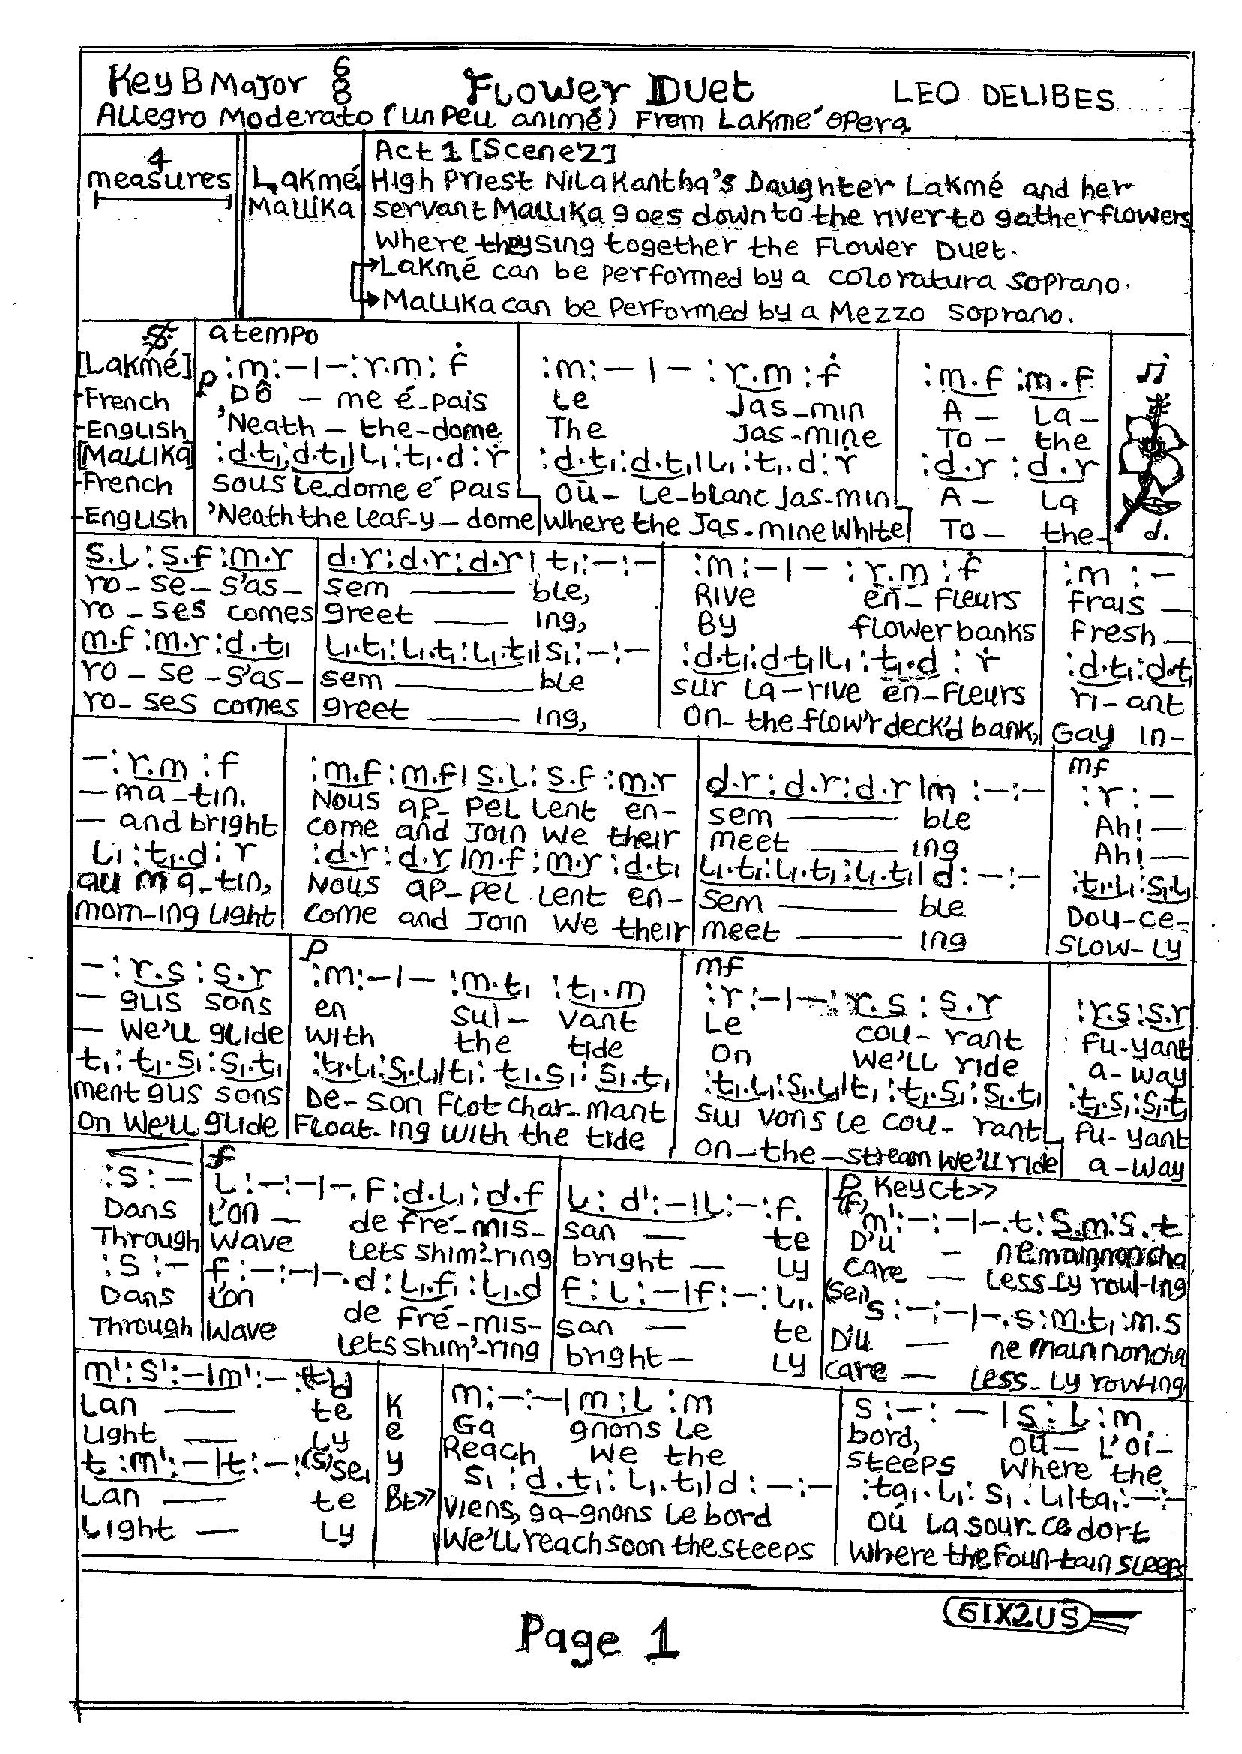 Key B Major 6/8 Flower Duet LEO DELIBES
Allegro Moderato (un peu animé) From Lakmé opera
4 measures
Lakmé
Mallika
Act 1 [Scene 2]
High Priest Nilakantha's Daughter Lakmé and her
servant Mallika goes down to the river to gather flowers
Where they sing together the Flower Duet.
→Lakmé can be performed by a coloratura soprano.
→Mallika can be performed by a Mezzo soprano.
a tempo
[Lakmé] p :m:–|–:r.m:f :m:–|–:r.m:f :m.f:m.f
-French Dô – me é-pais Le Jas-min A – La-
-English 'Neath – the-dome The Jas-mine To – the
[Mallika] :d.t₁:d.t₁|L₁:t₁.d:r :d.t₁:d.t₁|L₁:t₁.d:r :d.r:d.r
-French sous Le dome é pais Où – Le-blanc Jas-min A – La
-English 'Neath the leaf-y – dome Where the Jas-mine White To – the-
d.
s.L:s.f:m.r d.r:d.r:d.r|t₁:–:– :m:–|–:r.m:f :m:–
ro – se – s'as – sem ble, Rive en – fleurs frais –
ro – ses comes greet ing, By flower banks Fresh –
m.f:m.r:d.t₁ L₁.t₁:L₁.t₁:L₁.t₁|s₁:–:– :d.t₁:d.t₁|L₁:t₁.d:r :d.t₁:d.t₁
ro – se – s'as – sem ble sur La – rive en – fleurs ri – ant
ro – ses comes greet ing, On – the flow'r deck'd bank, Gay in –
–:r.m:f :m.f:m.f|s.L:s.f:m.r d.r:d.r:d.r|m:–:– mf :r:–
– ma – tin. Nous ap – pel lent en – sem ble Ah! –
– and bright come and Join we their meet ing Ah! –
L₁:t₁.d:r :d.r:d.r|m.f:m.r:d.t₁ L₁.t₁:L₁.t₁:L₁.t₁|d:–:– :t₁.L₁:s₁.L₁
au ma – tin, Nous ap – pel lent en – sem ble Dou – ce –
morn – ing Light come and Join we their meet ing Slow – ly
–:r.s:s.r p :m:–|–:m.t₁:t₁.m mf :r:–|–:r.s:s.r :r.s:s.r
– gus sons en sui – vant Le cou – rant fu – yant
– we'll glide with the tide on we'll ride a – way
t₁:t₁.s₁:s₁.t₁ :t₁.L₁:s₁.L₁|t₁:t₁.s₁:s₁.t₁ :t₁.L₁:s₁.L₁|t₁:t₁.s₁:s₁.t₁ :t₁.s₁:s₁.t₁
ment gus sons De – son flot char – mant sui vons Le cou – rant fu – yant
On we'll glide Float – ing with the tide on – the – stream we'll ride a – way
:s:– f L:–:–|–.f:d.L₁:d.f L:d':–|L:–:f. p Key Ct>>
Dans L'on – de fré – mis – san – te m':–:–|–.t:s.m:s.t
Through wave Lets shim'-ring bright – ly D'u – ne main noncha
:s:– f:–:–|–.d:L₁.f₁:L₁.d f:L:–|f:–:L₁. care – less-ly row-ing
Dans L'on de fré – mis – san – te s:–:–|–.s:m.t₁:m.s
Through Wave Lets shim'-ring bright – ly D'u – ne main noncha
care – Less-ly rowing
m':s':–|m':–: Key Bt>> m:–:–|m:L:m s:–:–|s:L:m
Lan te Ga gnons Le bord, où – L'oi –
Light ly Reach we the steeps where the
t:m':–|t:–: s₁:d.t₁:L₁.t₁|d:–:– :ta₁.L₁:s₁.L₁|ta₁:–:–
Lan te Viens, ga-gnons Le bord où La sour-ce dort
Light – ly We'll reach soon the steeps where the foun-tain sleeps
61X2US
Page 1